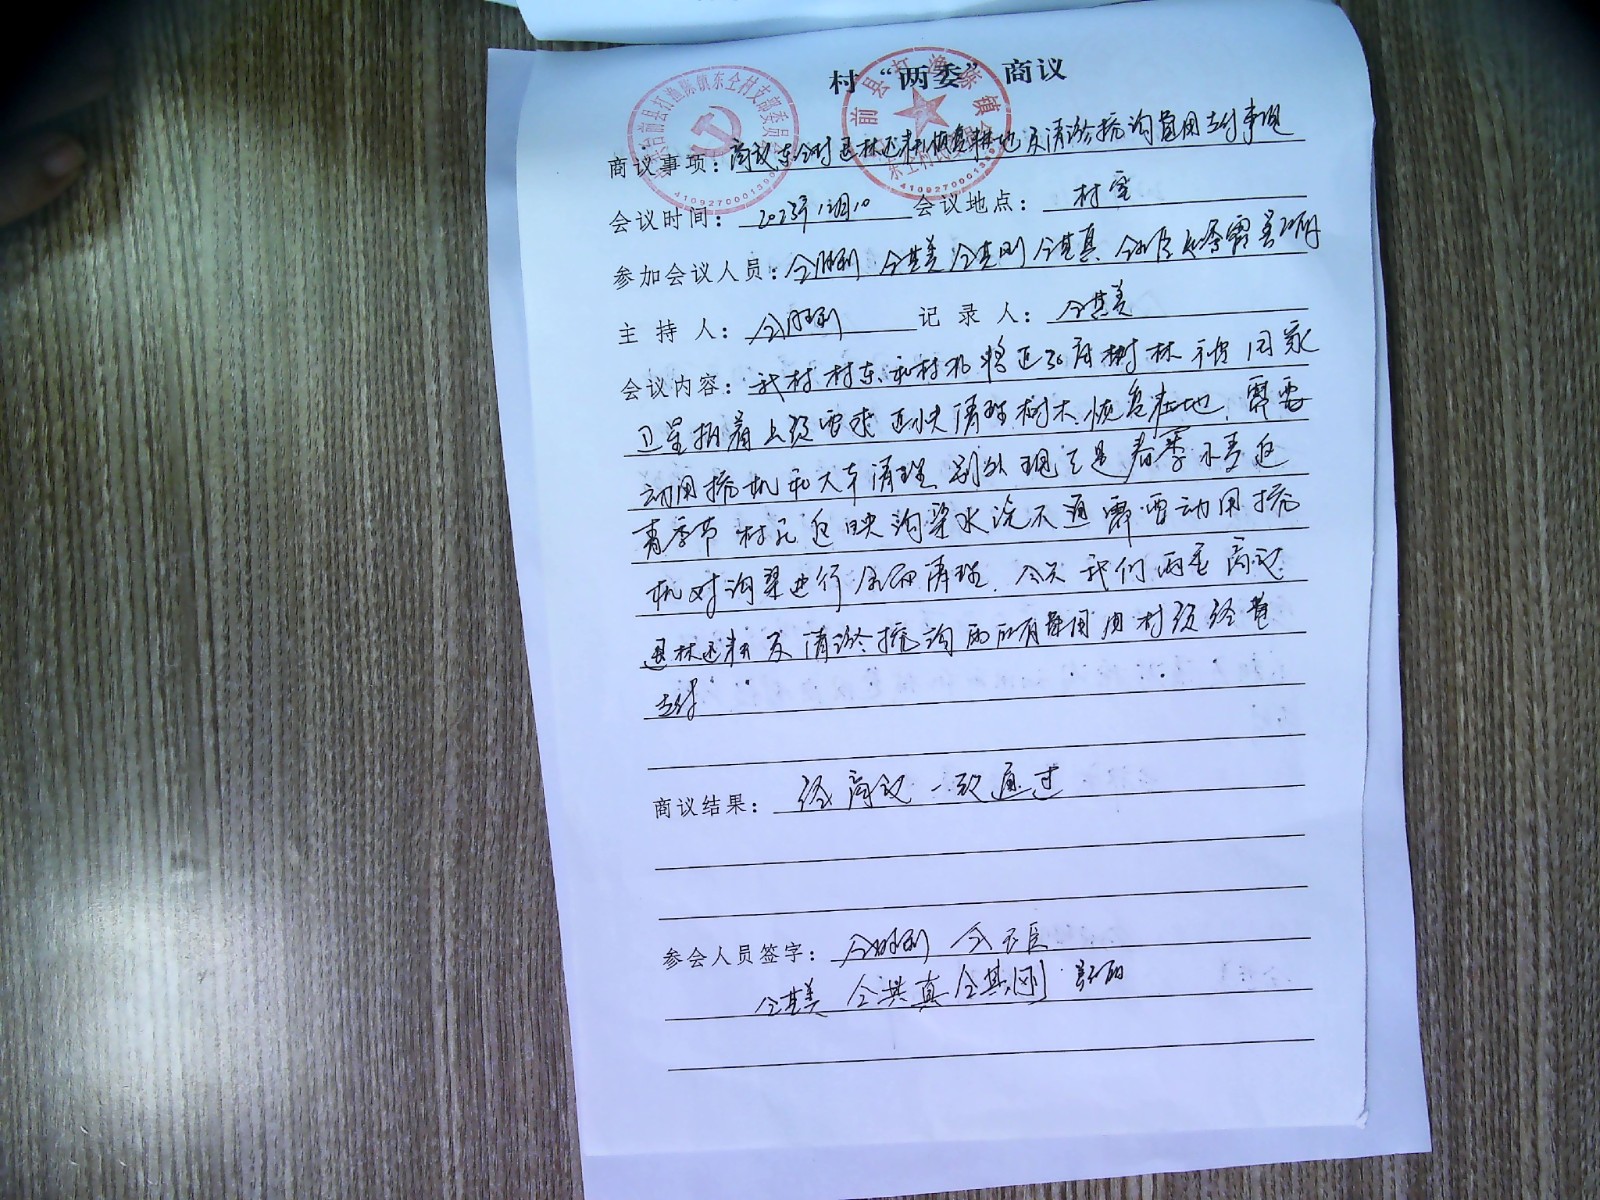 村“两委”商议
商议事项：商议东仝村退林还耕恢复耕地及清淤挖沟费用支付事项
会议时间：2023年12月10 会议地点：村室
参加会议人员：仝胜利 仝其美 仝其刚 仝其真
主持人：仝胜利 记录人：仝其美
会议内容：我村村东和村北将近30亩树林被国家
卫星拍着上级要求近快清理树木恢复基地，需要
动用挖机和大车清理，别外现又是春季小麦返
青季节村民反映沟渠水流不通需要动用挖
机对沟渠进行全面清理。今天我们两委商议
退林还耕及清淤挖沟的所有费用由村级经费
支付
商议结果：经商议一致通过
参会人员签字：仝胜利
仝其美 仝其真 仝其刚
4109270001390
41092700013